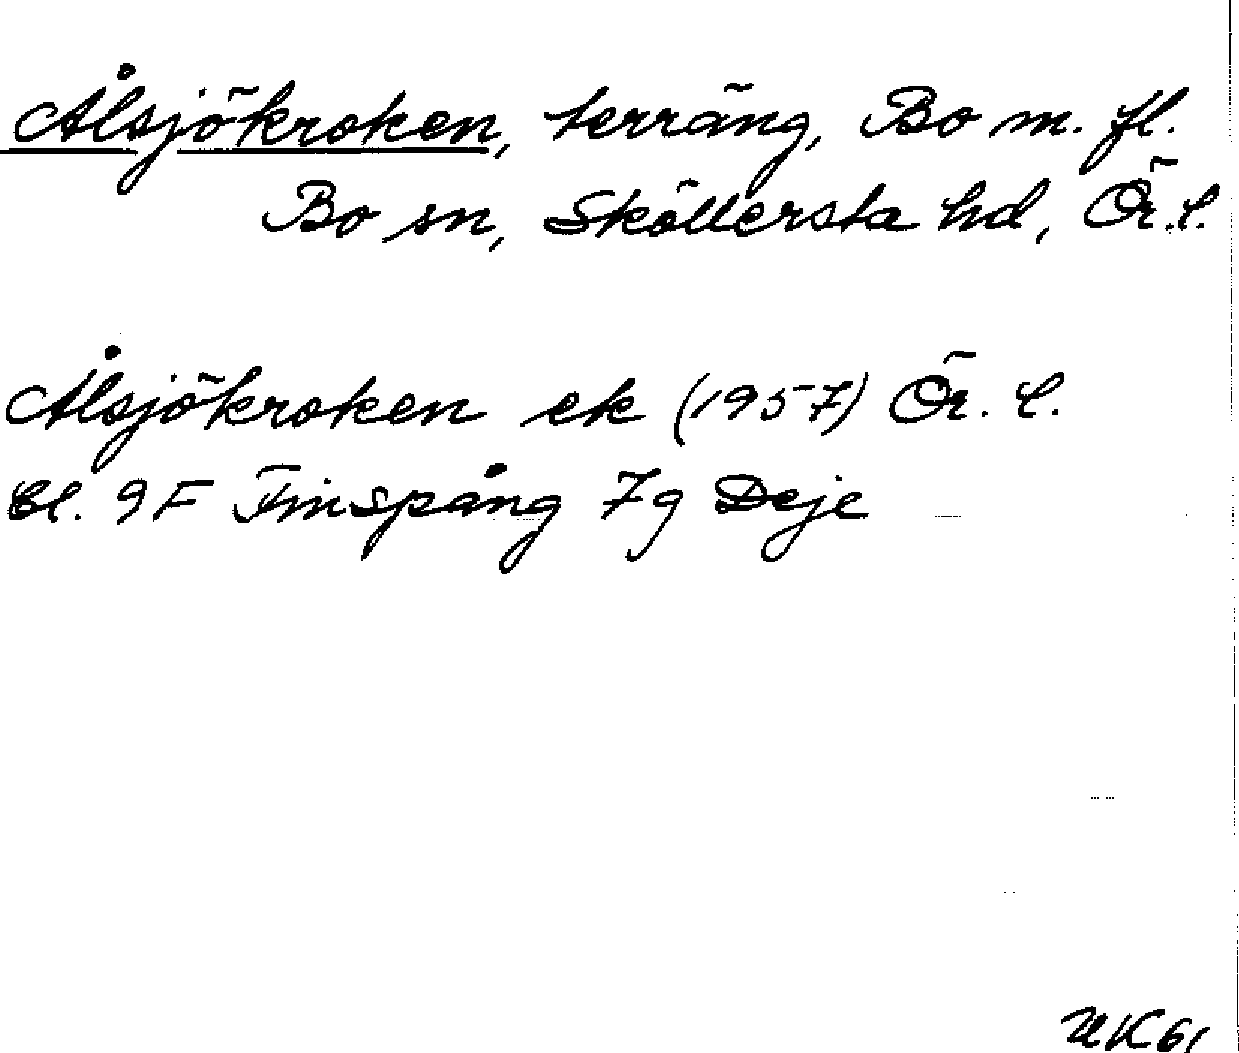 Ålsjökroken, terräng, Bo m. fl.
Bo sn, Sköllersta hd, Ör.l.
Ålsjökroken ek (1957) Ör. l.
bl. 9F Finspång 7g Deje
UK61